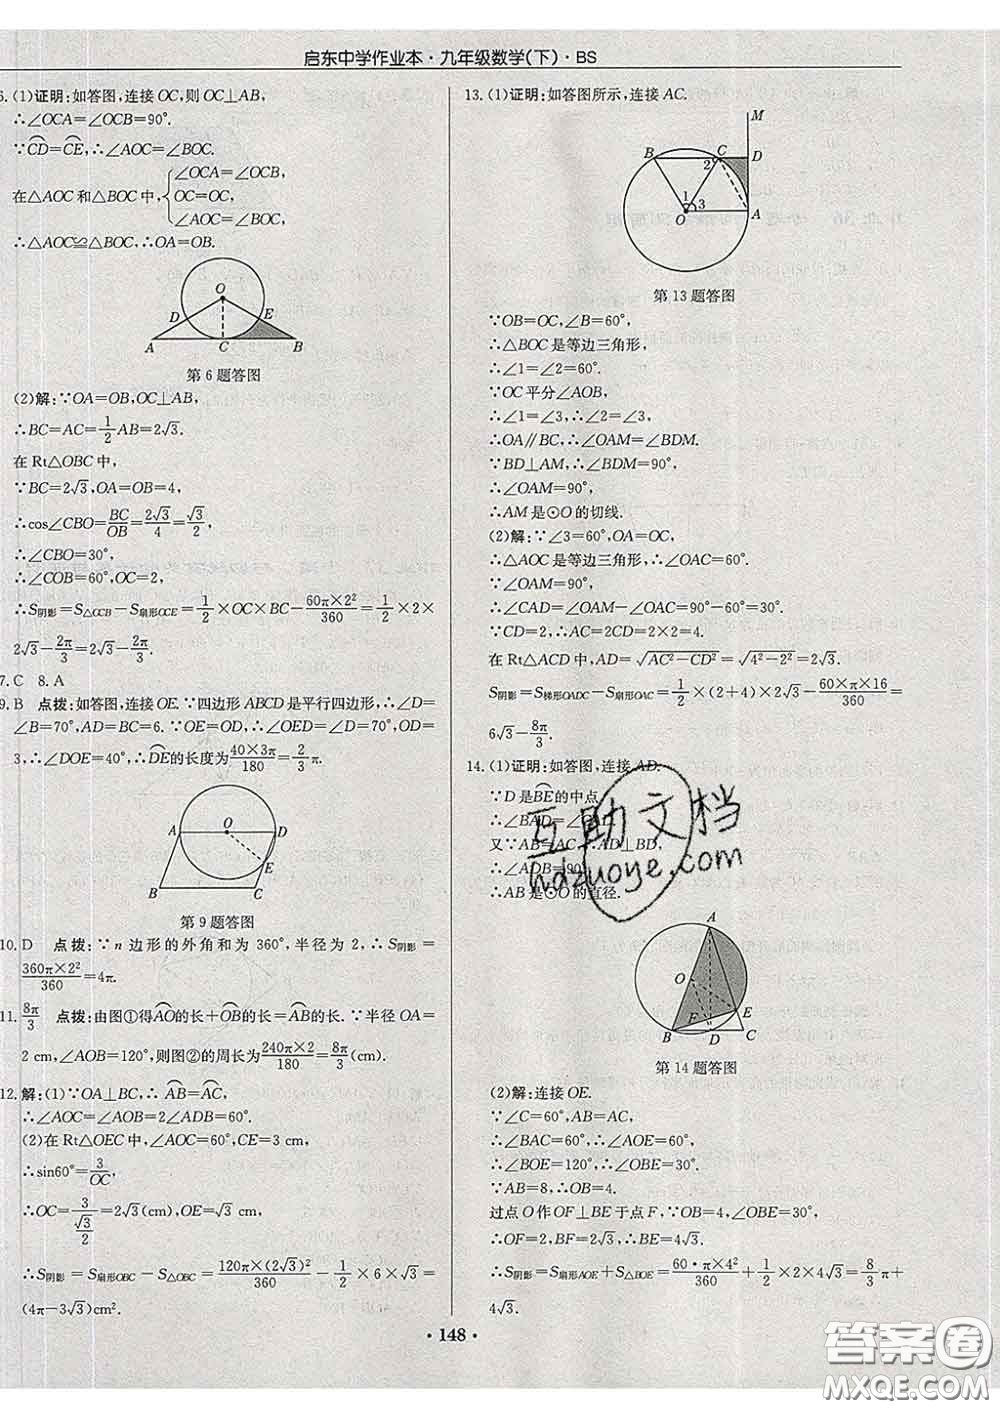 启东中学作业本·九年级数学(下)·BS
6.(1)证明:如答图,连接OC,则OC⊥AB,
∴∠OCA=∠OCB=90°.
∵⌒CD=⌒CE,∴∠AOC=∠BOC.
在△AOC和△BOC中,{∠OCA=∠OCB
OC=OC,
∠AOC=∠BOC,
∴△AOC≌△BOC,∴OA=OB.
O
D E
A C B
第6题答图
(2)解:∵OA=OB,OC⊥AB,
∴BC=AC=1/2AB=2√3.
在Rt△OBC中,
∵BC=2√3,OA=OB=4,
∴cos∠CBO=BC/OB=2√3/4=√3/2,
∴∠CBO=30°,
∴∠COB=60°,OC=2,
∴S阴影=S△OCB-S扇形OCE=1/2×OC×BC-60π×2²/360=1/2×2×
2√3-2π/3=2√3-2π/3.
7.C 8.A
9.B 点拨:如答图,连接OE.∵四边形ABCD是平行四边形,∴∠D=
∠B=70°,AD=BC=6.∵OE=OD,∴∠OED=∠D=70°,OD=
3,∴∠DOE=40°,∴⌒DE的长度为40×3π/180=2/3π.
A O D
E
B C
第9题答图
10.D 点拨:∵n边形的外角和为360°,半径为2,∴S阴影=
360π×2²/360=4π.
11.8π/3 点拨:由图①得⌒AO的长+⌒OB的长=⌒AB的长.∵半径OA=
2 cm,∠AOB=120°,则图②的周长为240π×2/180=8π/3(cm).
12.解:(1)∵OA⊥BC,∴⌒AB=⌒AC,
∴∠AOC=∠AOB=2∠ADB=60°.
(2)在Rt△OEC中,∠AOC=60°,CE=3 cm,
∴sin60°=3/OC,
∴OC=3/(√3/2)=2√3(cm),∴OE=√3(cm),
∴S阴影=S扇形OBC-S△OBC=120π×(2√3)²/360-1/2×6×√3=
(4π-3√3)cm².
13.(1)证明:如答图所示,连接AC.
M
B C D
2
1
3
O A
第13题答图
∵OB=OC,∠B=60°,
∴△BOC是等边三角形,
∴∠1=∠2=60°.
∵OC平分∠AOB,
∴∠1=∠3,∴∠2=∠3,
∴OA∥BC,∴∠OAM=∠BDM.
∵BD⊥AM,∴∠BDM=90°,
∴∠OAM=90°,
∴AM是⊙O的切线.
(2)解:∵∠3=60°,OA=OC,
∴△AOC是等边三角形,∴∠OAC=60°.
∵∠OAM=90°,
∴∠CAD=∠OAM-∠OAC=90°-60°=30°.
∵CD=2,∴AC=2CD=2×2=4.
在Rt△ACD中,AD=√(AC²-CD²)=√(4²-2²)=2√3.
S阴影=S梯形OADC-S扇形OAC=1/2×(2+4)×2√3-60×π×16/360=
6√3-8π/3.
14.(1)证明:如答图,连接AD.
∵D是⌒BE的中点,
∴∠BAD=∠CAD.
又∵AB=AC,∴AD⊥BD,
∴∠ADB=90°,
∴AB是⊙O的直径.
A
O
F E
B D C
第14题答图
(2)解:连接OE.
∵∠C=60°,AB=AC,
∴∠BAC=60°,∴∠AOE=60°,
∴∠BOE=120°,∴∠OBE=30°.
∵AB=8,∴OB=4.
过点O作OF⊥BE于点F,∵OB=4,∠OBE=30°,
∴OF=2,BF=2√3,∴BE=4√3,
∴S阴影=S扇形AOE+S△BOE=60·π×4²/360+1/2×4√3×2=8/3π+
4√3.
·148·
互助文档
hdzuoye.com
答案圈
MXQE.COM